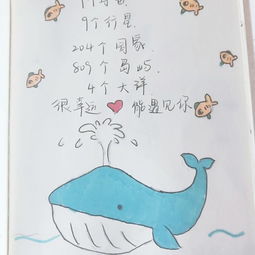 9个行星
204个国家
809个岛屿
4个大洋
很幸运❤能遇见你